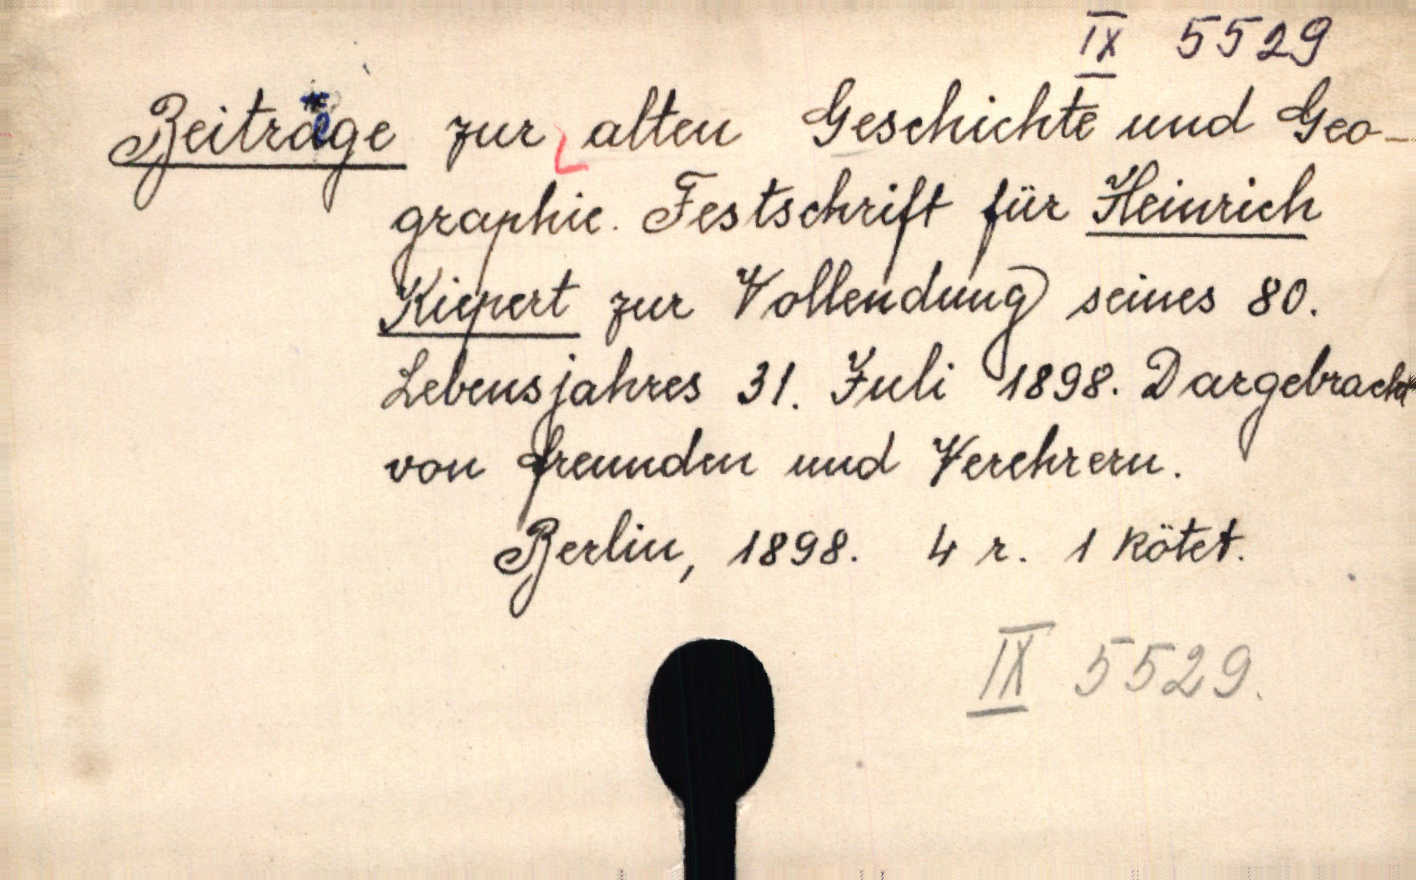 IX 5529
Beiträge zur alten Geschichte und Geo-
graphie. Festschrift für Heinrich
Kiepert zur Vollendung seines 80.
Lebensjahres 31. Juli 1898. Dargebracht
von Freunden und Verehrern.
Berlin, 1898. 4 r. 1 kötet.
IX 5529.